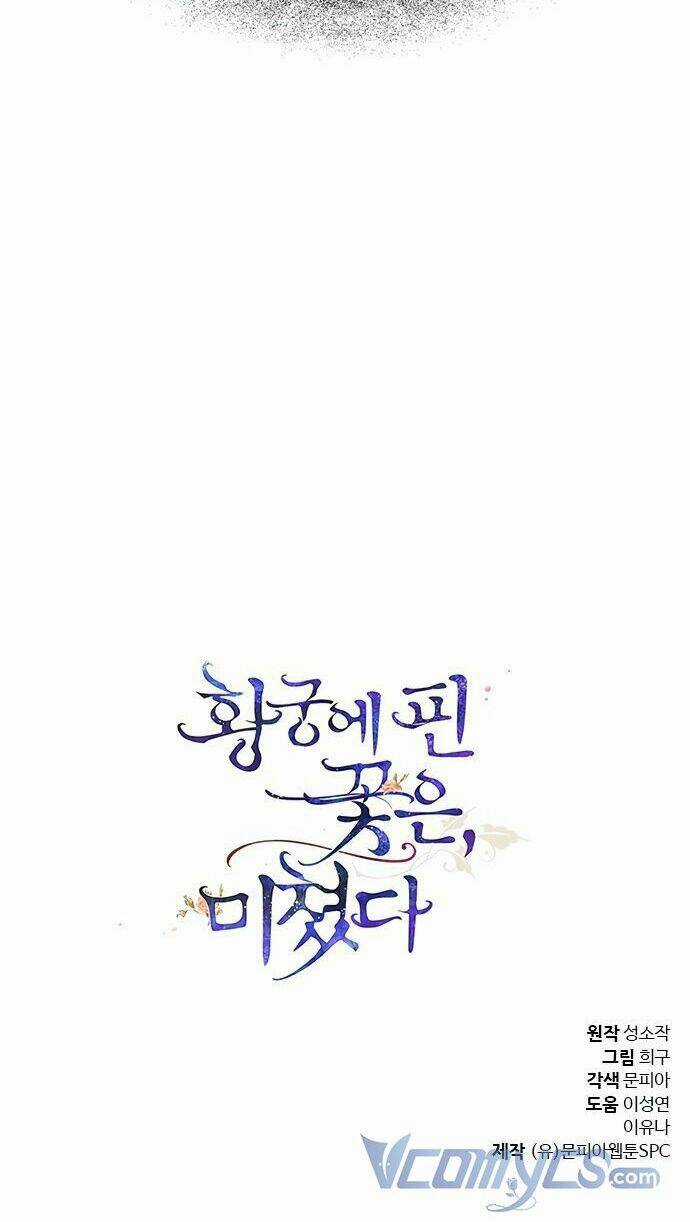 황궁에 핀
꽃은,
미쳤다
원작 성소작
그림 희구
각색 문피아
도움 이성연
이유나
제작 (유)문피아웹툰SPC
VCOMYCS.com